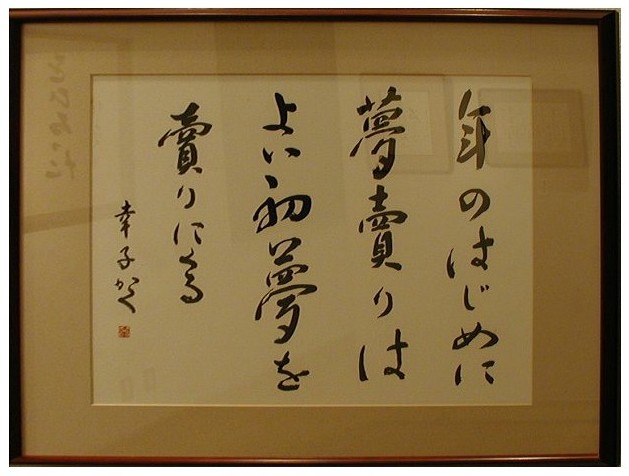 年のはじめに
夢賣りは
よい初夢を
賣りにくる
幸子かく